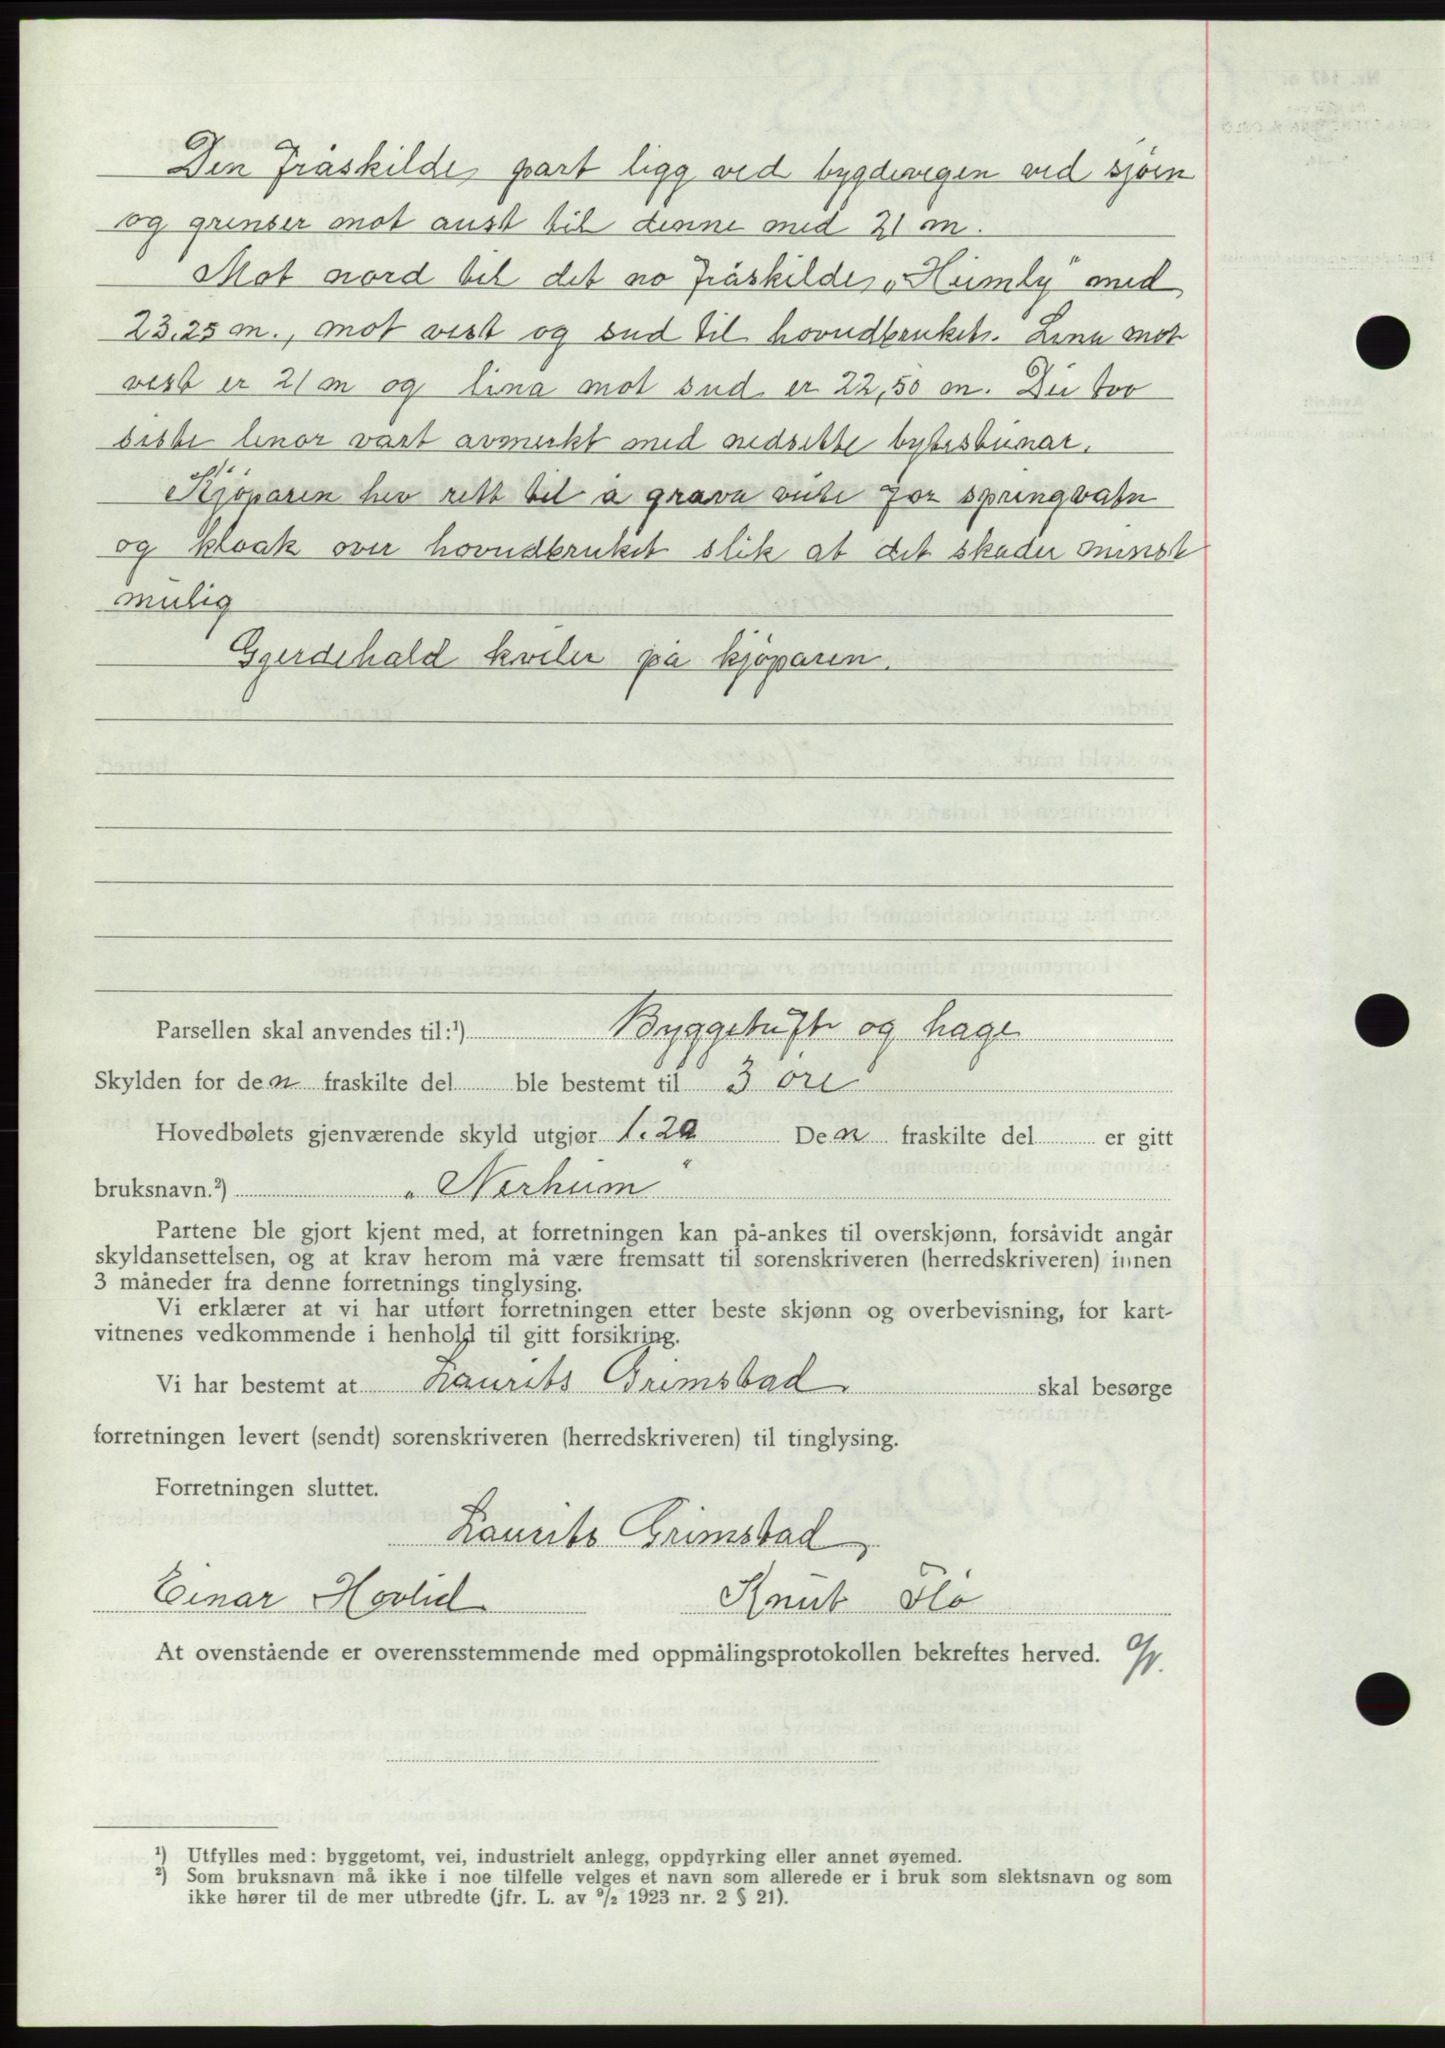 Den fråskilde part ligg ved bygdevegen ved sjøen
og grenser mot aust til denne med 21 m.
Mot nord til det no fråskilde "Heimly" med
23.25 m., mot vest og sud til hovudbruket. Lina mot
vest er 21 m og lina mot sud er 22,50 m. Dei too
siste linor vart avmerkt med nedsette bytesteinar.
Kjøparen hev rett til å grava veite for springvatn
og kloak over hovudbruket slik at det skader minst
mulig
Gjerdehald kviler på kjøparen.
Parsellen skal anvendes til:¹) Byggetuft og hage
Skylden for den fraskilte del ble bestemt til 3 öre
Hovedbølets gjenværende skyld utgjør 1.20 Den fraskilte del er gitt
bruksnavn.²) "Nerheim"
Partene ble gjort kjent med, at forretningen kan på-ankes til overskjønn, forsåvidt angår
skyldansettelsen, og at krav herom må være fremsatt til sorenskriveren (herredskriveren) innen
3 måneder fra denne forretnings tinglysing.
Vi erklærer at vi har utført forretningen etter beste skjønn og overbevisning, for kart-
vitnenes vedkommende i henhold til gitt forsikring.
Vi har bestemt at Laurits Grimstad skal besørge
forretningen levert (sendt) sorenskriveren (herredskriveren) til tinglysing.
Forretningen sluttet.
Laurits Grimstad
Einar Hovlid Knut Flö
At ovenstående er overensstemmende med oppmålingsprotokollen bekreftes herved.
¹) Utfylles med: byggetomt, vei, industrielt anlegg, oppdyrking eller annet øyemed.
²) Som bruksnavn må ikke i noe tilfelle velges et navn som allerede er i bruk som slektsnavn og som
ikke hører til de mer utbredte (jfr. L. av ⁹/₂ 1923 nr. 2 § 21).